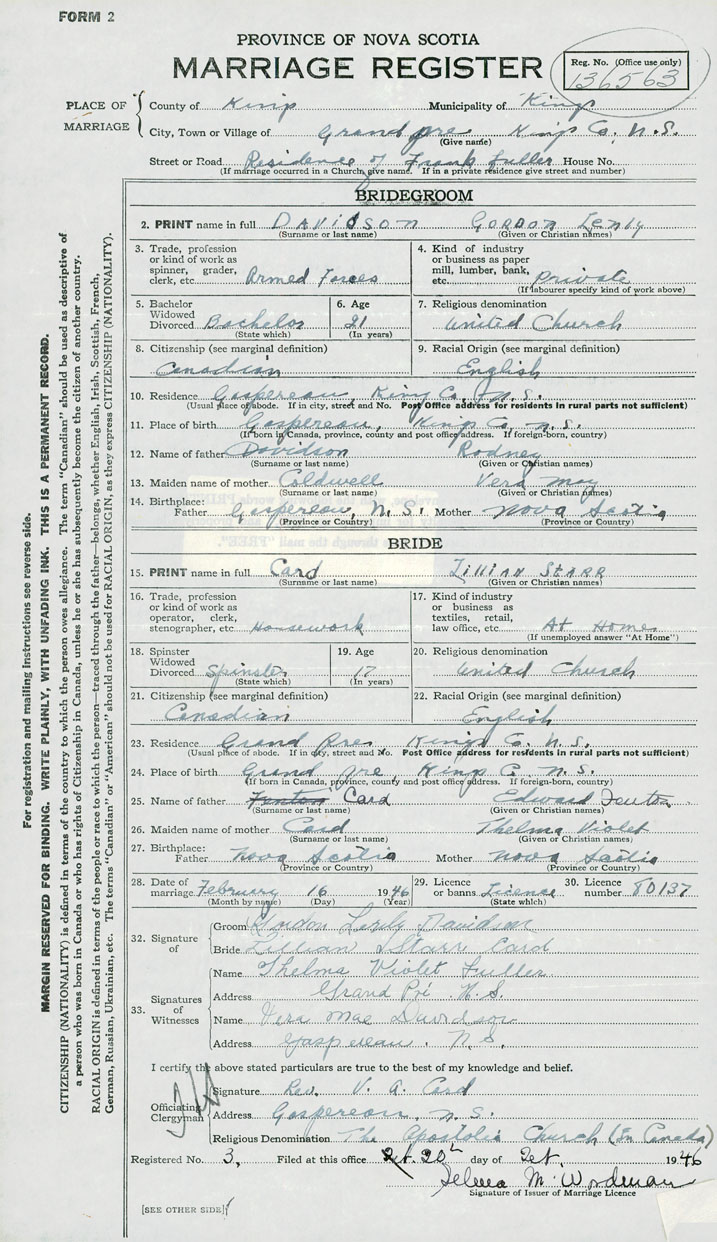 FORM 2
PROVINCE OF NOVA SCOTIA
MARRIAGE REGISTER
Reg. No. (Office use only)
136563
PLACE OF MARRIAGE
County of Kings Municipality of Kings
City, Town or Village of Grand pre Kings Co. N.S.
(Give name)
Street or Road Residence of Frank Fuller House No.
(If marriage occurred in a Church, give name. If in a private residence give street and number)
BRIDEGROOM
2. PRINT name in full DAVIDSON GORDON Lenly
(Surname or last name) (Given or Christian names)
3. Trade, profession or kind of work as spinner, grader, clerk, etc. Armed Forces
4. Kind of industry or business as paper mill, lumber, bank, etc. Private
(If labourer specify kind of work above)
5. Bachelor Widowed Divorced Bachelor
(State which)
6. Age 21
(In years)
7. Religious denomination
United Church
8. Citizenship (see marginal definition)
Canadian
9. Racial Origin (see marginal definition)
English
10. Residence Gaspereau, King Co. N.S.
(Usual place of abode. If in city, street and No. Post Office address for residents in rural parts not sufficient)
11. Place of birth Gaspereau, Kings Co. N.S.
(If born in Canada, province, county and post office address. If foreign-born, country)
12. Name of father Davidson Rodney
(Surname or last name) (Given or Christian names)
13. Maiden name of mother Coldwell Vera May
(Surname or last name) (Given or Christian names)
14. Birthplace: Father Gaspereau, N.S. Mother Nova Scotia
(Province or Country) (Province or Country)
BRIDE
15. PRINT name in full Card LILLIAN STARR
(Surname or last name) (Given or Christian names)
16. Trade, profession or kind of work as operator, clerk, stenographer, etc. Housework
17. Kind of industry or business as textiles, retail, law office, etc. At Home
(If unemployed answer "At Home")
18. Spinster Widowed Divorced Spinster
(State which)
19. Age 17
(In years)
20. Religious denomination
United Church
21. Citizenship (see marginal definition)
Canadian
22. Racial Origin (see marginal definition)
English
23. Residence Grand Pre Kings Co. N.S.
(Usual place of abode. If in city, street and No. Post Office address for residents in rural parts not sufficient)
24. Place of birth Grand pre Kings Co. N.S.
(If born in Canada, province, county and post office address. If foreign-born, country)
25. Name of father Fenton Card Edward Fenton
(Surname or last name) (Given or Christian names)
26. Maiden name of mother Card Thelma Violet
(Surname or last name) (Given or Christian names)
27. Birthplace: Father Nova Scotia Mother Nova Scotia
(Province or Country) (Province or Country)
28. Date of marriage February 16 1946
(Month by name) (Day) (Year)
29. Licence or banns License
(State which)
30. Licence number 80137
32. Signature of
Groom Gordon Davidson
Bride Lillian Starr Card
33. Signatures of Witnesses
Name Thelma Violet Fuller
Address Grand Pré N.S.
Name Vera Mae Davidson
Address Gaspereau. N.S.
I certify the above stated particulars are true to the best of my knowledge and belief.
Officiating Clergyman
Signature Rev. V. A. Card
Address Gaspereau, N.S.
Religious Denomination The Apostolic Church (In Canada)
Registered No. 3, Filed at this office 20 day of 1946
M. Wordman
Signature of Issuer of Marriage Licence
[SEE OTHER SIDE]
For registration and mailing instructions see reverse side.
MARGIN RESERVED FOR BINDING. WRITE PLAINLY, WITH UNFADING INK. THIS IS A PERMANENT RECORD.
CITIZENSHIP (NATIONALITY) is defined in terms of the country to which the person owes allegiance. The term "Canadian" should be used as descriptive of
a person who was born in Canada or who has rights of Citizenship in Canada, unless he or she has subsequently become the citizen of another country.
RACIAL ORIGIN is defined in terms of the people or race to which the person—traced through the father—belongs, whether English, Irish, Scottish, French,
German, Russian, Ukrainian, etc. The terms "Canadian" or "American" should not be used for RACIAL ORIGIN, as they express CITIZENSHIP (NATIONALITY).